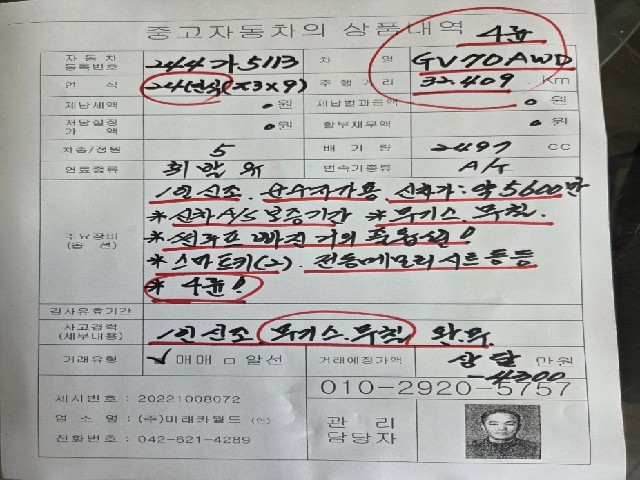 중고자동차의 상품내역
4륜
자동차 등록번호 244가5113 차 명 GV70 AWD
연 식 24년식( 주행거리 32.409 Km
체납세액 0원 체납벌과금액 0원
저당설정 가액 0원 할부채무액 0원
차종/정원 5 배 기 량 2497 CC
연료종류 휘발유 변속기종류 A/T
1인신조. 완무자가용. 신차가: 약5600만
*신차A/S보증기간 *무키스.무칙.
주요장비 (옵션) *썬루프빠진거의풀옵션!
*스마트키(2). 전동메모리시트등등
* 4륜!
검사유효기간
사고경력 (세부내용) 1인신조. 무키스.무칙 완.무
거래유형 ✓매매 □알선 거래예정가액 상담 만원
-4300
010-2920-5757
제시번호 : 20221008072
업 소 명 : (주)미래카월드 (인)
전화번호 : 042-621-4289
관 리
담당자